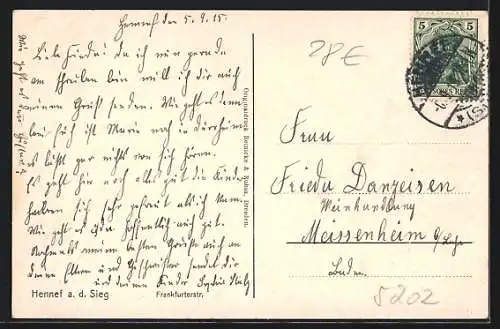 Hennef den 5.9.15.
Liebe Frieda! Da ich nun gerade
am Schreiben bin will ich dir auch
einen Gruß senden. Wie geht es denn
ist Marie noch in
es läßt gar nichts von sich hören.
Es geht hier noch alles gut die Kinder
haben sich sehr gefreut als ich kam.
Wie geht es hoffentlich auch gut.
Nochmals meine besten Grüße auch an
deine Eltern und Geschwister sendet dir
und deine Kinder Sophie
Hennef a. d. Sieg Frankfurterstr.
Originaldruck Bernicke & Dresden.
5 5
28E
Frau
Frieda Danzeisen
Weinhandlung
Meissenheim b/Lahr
Baden.
5202